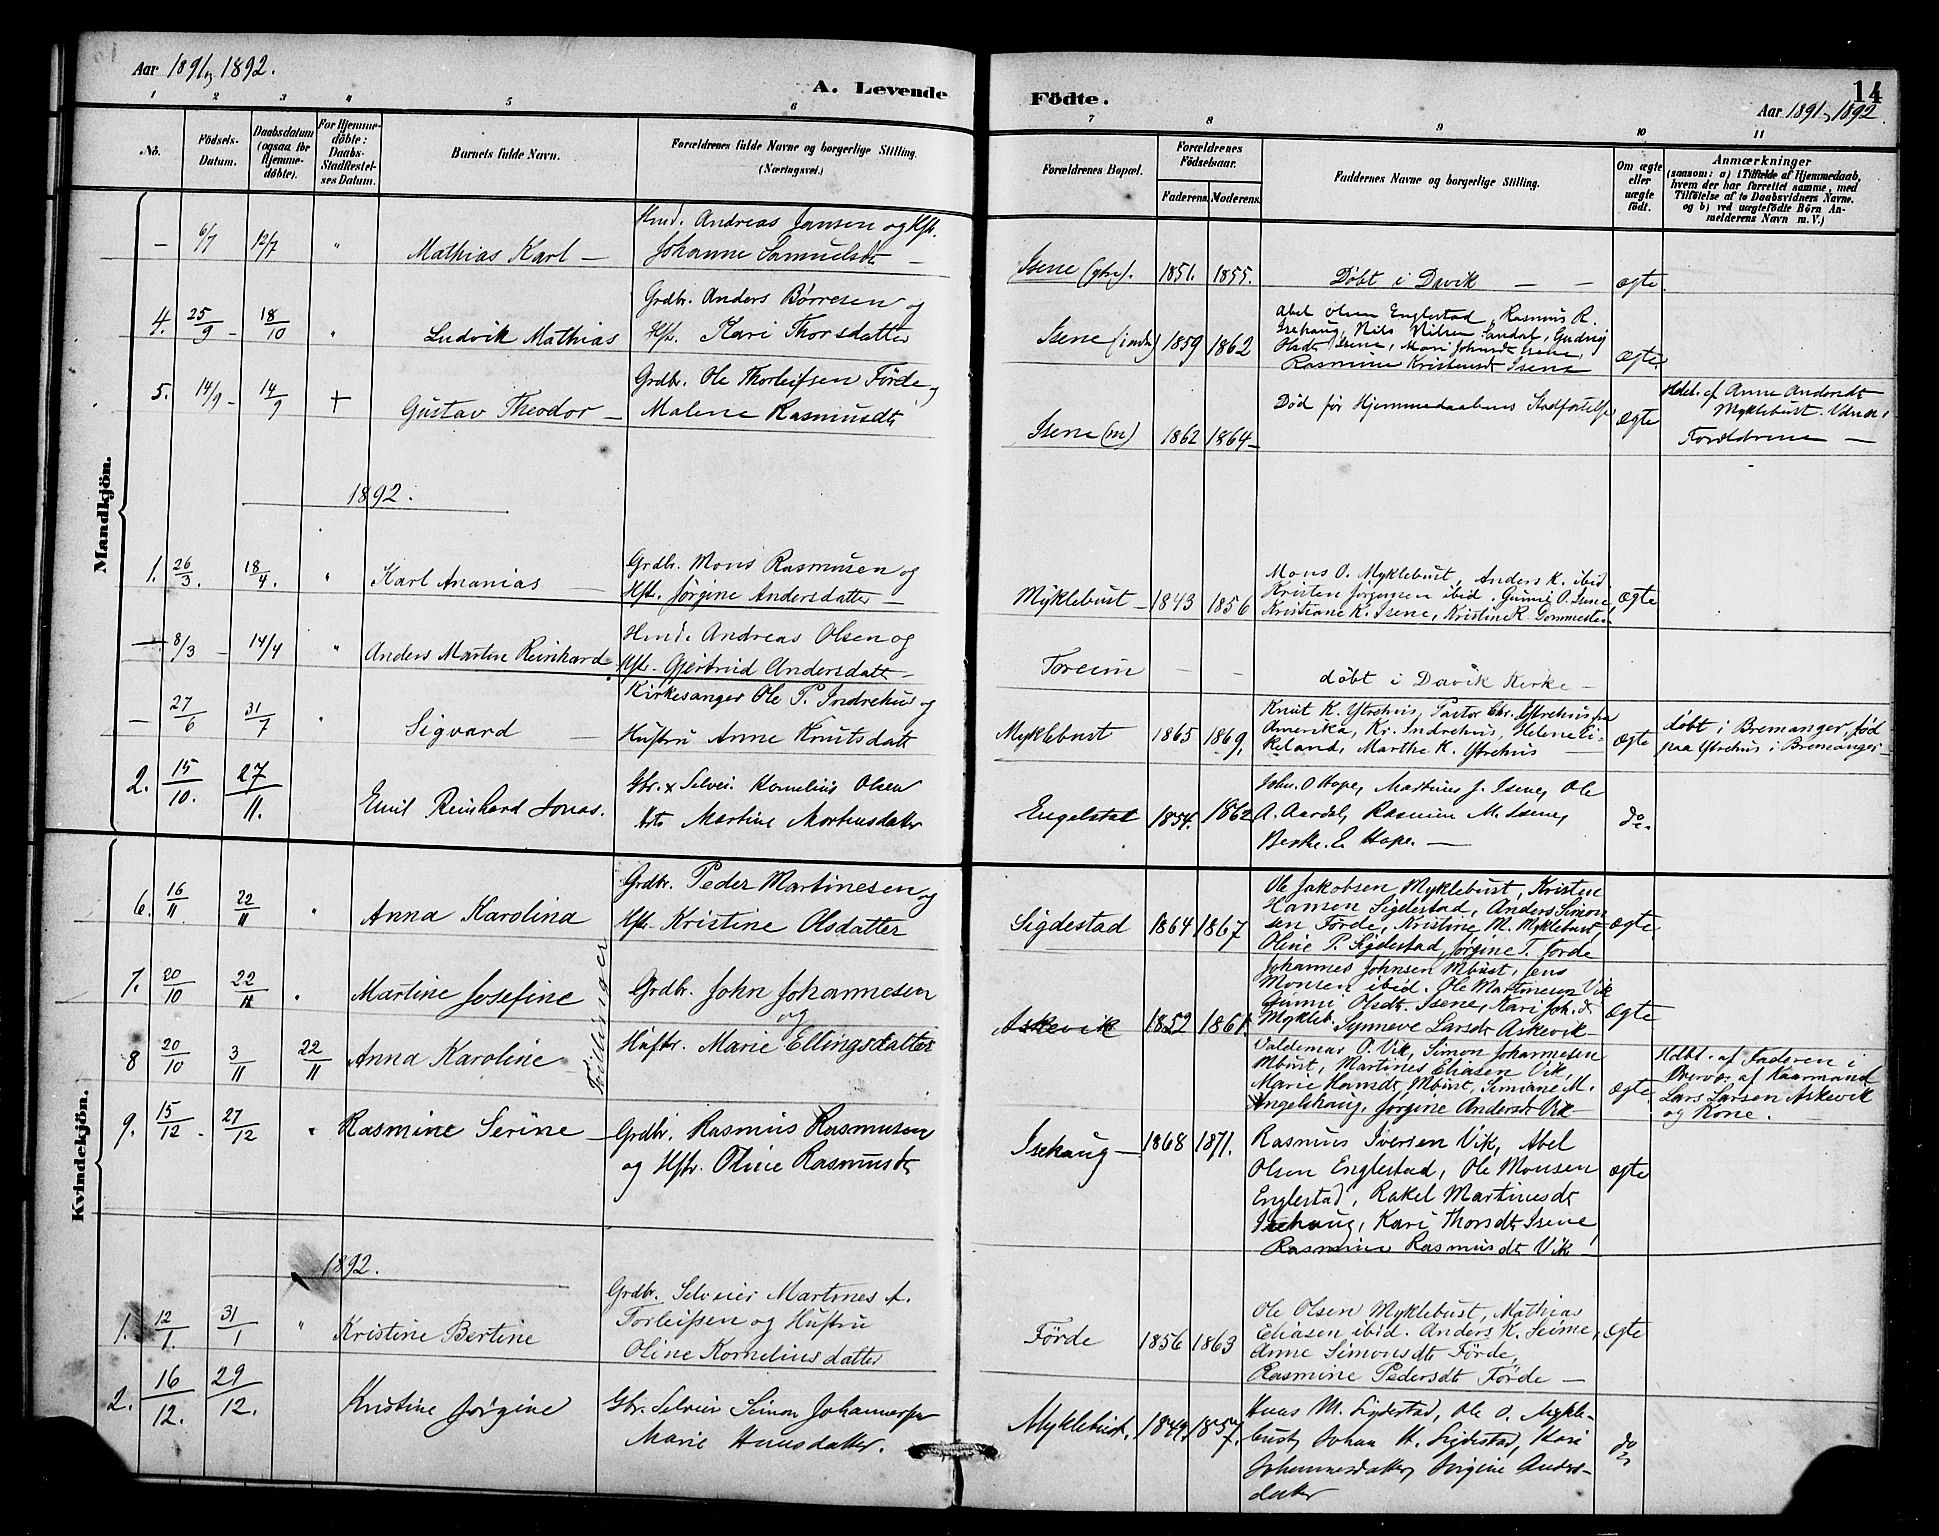 Aar 1891 og 1892.
A. Levende
Födte.
14
Aar 1891 og 1892.
1 2 3 4 5 6 7 8 9 10 11
No.
Födsels-
Datum.
Daabsdatum
(ogsaa for
Hjemme-
döbte).
For Hjemme-
döbte:
Daabs-
Stadfæstel-
ses Datum.
Barnets fulde Navn.
Forældrenes fulde Navne og borgerlige Stilling.
(Næringsvei.)
Forældrenes Bopæl.
Forældrenes
Födselsaar.
Faderens. Moderens.
Faddernes Navne og borgerlige Stilling.
Om ægte
eller
uægte
födt.
Anmærkninger
(saasom: a) i Tilfælde af Hjemmedaab,
hvem der har forrettet samme, med
Tilföielse af to Daabsvidners Navne.
og b) ved uægtefödte Börn An-
melderens Navn m. V.)
Mandkjön.
— 6/7 12/7 " Mathias Karl —
Hmd. Andreas Jansen og Hst.
Johanne Samuelsdt —
Isene (ytre). 1851. 1855.
Døbt i Davik — —
ægte.
4. 25/9 — 18/10 " Ludvik Mathias
Grdbr. Anders Børresen og
Hst. Kari Thorsdatter
Isene (indr) 1859 1862
Abel Olsen Englestad, Rasmus R.
Isehaug, Nils Nilsen Sandal, Gudrig
Olsdt Isene, Mari Johnsdt Isene,
Rasmine Kristensdt Isene
ægte.
5. 14/9 — 14/9 + Gustav Theodor —
Grdbr. Ole Thorleifsen Förde og
Malene Rasmusdt
Isene (m) 1862 1864 —
Død før Hjemmedaabens Stadfæstelse
ægte
Hdbt. af Anne Andersdt
Myklebust. Vidner:
Forældrene —
1892.
1. 26/3. 18/4. " Karl Ananias —
Grdbr. Mons Rasmusen og
Hst. Jørgine Andersdatter —
Myklebust — 1843 1856
Mons O. Myklebust, Anders K. ibid
Kristen Jørgensen ibid. Gunni O. Isene
Kristiane K. Isene, Kristine R. Dommesten
ægte
— 8/3 — 14/4 " Anders Martin Reinhard
Hmd. Andreas Olsen og
Hst. Gjertrud Andersdatt —
Toreim — —
døbt i Davik Kirke —
— 27/6 31/7 " Sigvard —
Kirkesanger Ole P. Indrehus og
Hustru Anne Knutsdatt
Myklebust 1865 1869.
Knut K. Ytrehus, Pastor Chr. Ytrehus fra
Amerika, Kr. Indrehus, Helene Ei-
keland, Marthe K. Ytrehus
ægte
døbt i Bremanger, fød
paa Ytrehus i Bremanger —
2. 15/10. 27/11. Emil Reinhard Jonas.
Gbr. x Selvei. Kornelius Olsen
Martine Mortensdatter
Engelstad 1854. 1862
John. O Hope, Martinus J. Isene, Ole
A. Aardal, Rasmine M. Isene,
E. Hope. —
do.
Kvindekjön.
6. 16/11 22/11 " Anna Karolina
Grdbr. Peder Martinesen og
Hst. Kristine Olsdatter
Sigdestad 1864 1867
Ole Jakobsen Myklebust, Kristen
Hansen Sigdestad, Anders Simon
sen Förde, Kristine M. Myklebust,
Oline P. Sigdestad, Jørgine T. Förde
ægte
7. 20/10 22/11 " Martine Josefine
Tvillinger
Grdbr. John Johannesen
og
Askevik 1852 1861.
Johannes Johnsen Mbust, Jens
Monsen ibid. Ole Martinesen Vik
Gunni Olsdt. Isene, Kari Joh. d.
Mykleb. Synneve Larsdt Askevik —
ægte
8 20/10 3/11 22/11 Anna Karoline —
Hustr. Marie Ellingsdatter
Valdemar O. Vik, Simon Johannesen
Mbust, Martines Eliasen Vik,
Marie Hansdt Mbust, Simiane M.
Angelshaug, Jørgine Andersdt Vik —
ægte
Hdbt. af Faderen i
Overvær af Kaarmand
Lars Larsen Askevik
og Kone.
9. 15/12 — 27/12 " Rasmine Serine —
Grdbr. Rasmus Rasmusen
og Hst. Oline Rasmusdt
Isehaug — 1868 1871.
Rasmus Iversen Vik, Abel
Olsen Englestad, Ole Monsen
Englestad, Rakel Martinusdt
Isehaug, Kari Thorsdt Isene,
Rasmine Rasmusdt Vik
ægte
1892.
1. 12/1. 31/1 " Kristine Bertine
Grdbr. Selveier Martines A.
Torleifsen og Hustru
Oline Kornelius datter
Förde 1856 1863
Ole Olsen Myklebust, Mathias
Eliasen ibid. Anders K. Seime,
Anne Simonsdt Förde,
Rasmine Pedersdt Förde —
ægte
2. 16/12. 29/12. Kristine Jørgine
Gbr. Selveier Simon Johannessen
Marie Hansdatter.
Myklebust. 1849. 1857.
Hans M. Sigdestad, Ole O. Mykle-
bust, Johan H. Sigdestad, Kari
Johannesdatter, Jørgine Anders-
datter
do